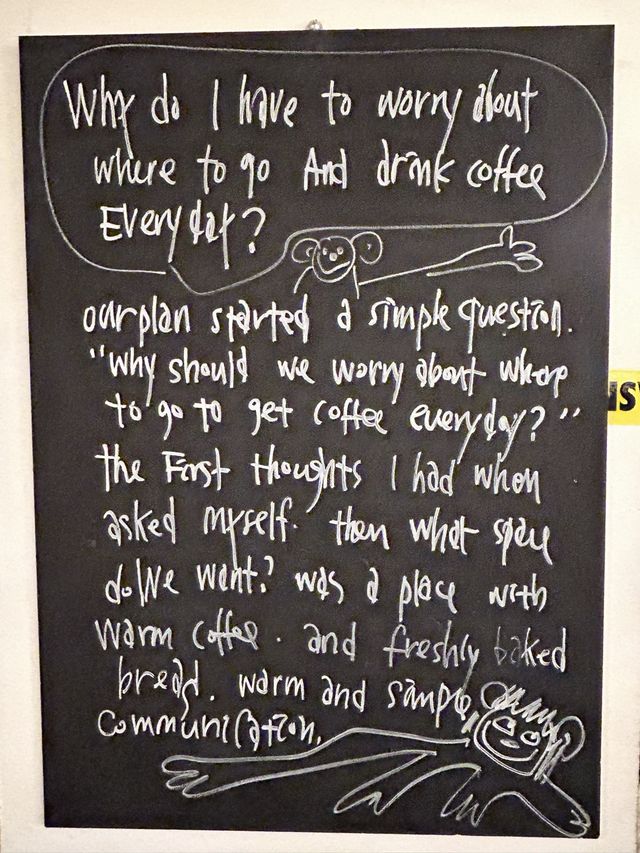 Why do I have to worry about
where to go And drink coffee
Every day?
our plan started a simple question.
"Why should we worry about where
to go to get coffee everyday?"
the First thoughts I had when
asked myself. then what space
do We want? was a place with
warm coffee. and freshly baked
bread. warm and sample
Communication.